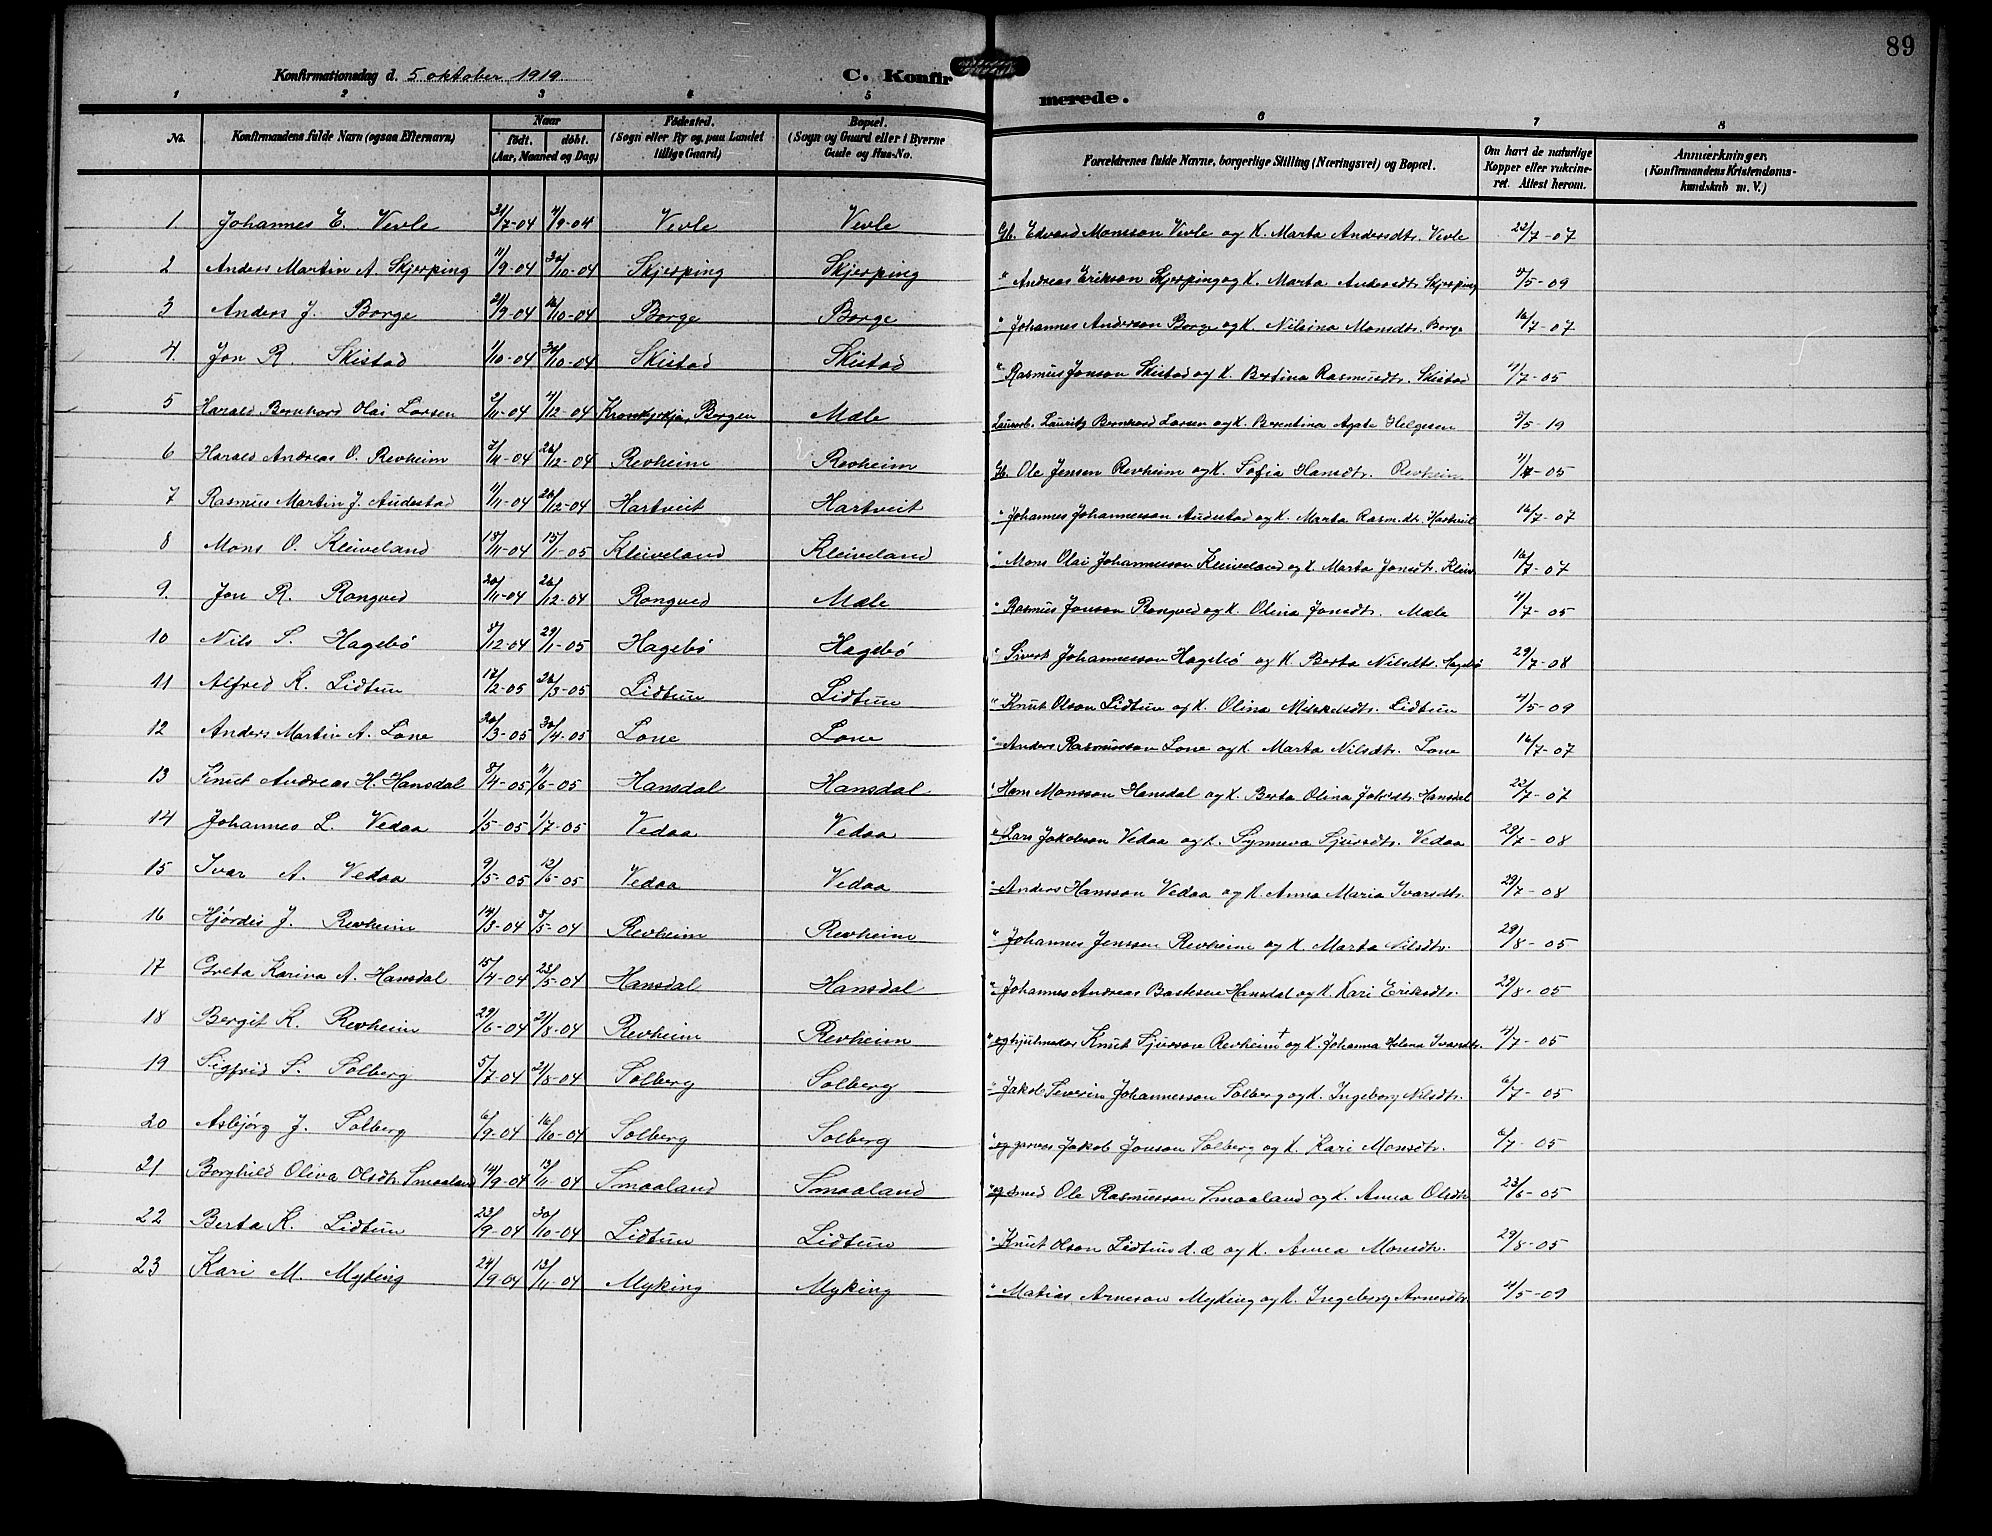 89
Konfirmationsdag d. 5 oktober 1919
C. Konfirmerede.
1 2 3 4 5 6 7 8
No. Konfirmandens fulde Navn (ogsaa Efternavn) Naar født. døbt. (Aar, Maaned og Dag) Fødested. (Sogn eller By og, paa Landet tillige Gaard) Bopæl. (Sogn og Gaard eller i Byerne Gade og Hus-No. Forældrenes fulde Navne, borgerlige Stilling (Næringsvei) og Bopæl. Om havt de naturlige Kopper eller vakcineret. Attest herom. Anmærkninger. (Konfirmandens Kristendomskundskab m. V.)
1 Johannes E. Vevle 31/7-04 4/9-04 Vevle Vevle Gb. Edvard Monsson Vevle og K. Marta Andersdtr. Vevle 22/7-07
2 Anders Martin A. Skjerping 11/9-04 30/10-04 Skjerping Skjerping " Andreas Erikson Skjerping og K. Marta Andersdtr. Skjerping 5/5-09
3 Anders J. Borge 21/9-04 16/10-04 Borge Borge " Johannes Anderson Borge og K. Nilsina Monsdtr. Borge 16/7-07
4. Jon R. Skistad 1/10-04 30/10-04 Skistad Skistad " Rasmus Jonson Skistad og K. Bertina Rasmusdtr. Skistad 4/7-05
5 Harald Bernhard Olai Larsen 2/11-04 4/12-04 Krosskyrkja, Bergen Mæle Lauritz Bernhard Larsen og K. Berentina Agate Helgesen 3/5-19
6 Harald Andreas O. Revheim 7/11-04 26/12-04 Revheim Revheim Gb. Ole Jensen Revheim og K. Sofia Hansdtr. Revheim 4/7-05
7 Rasmus Martin J. Audestad 11/11-04 26/12-04 Hartveit Hartveit " Johannes Johannesson Audestad og K. Marta Rasm.dtr. Hartveit 16/7-07
8 Mons O. Kleiveland 15/11-04 15/1-05 Kleiveland Kleiveland " Mons Olai Johannesson Kleiveland og K. Marta Jonsdtr. Kleiv. 16/7-07
9. Jon R. Rongved 20/11-04 26/12-04 Rongved Mæle " Rasmus Jonson Rongved og K. Olina Jonsdtr. Mæle 4/7-05
10 Nils S. Hagebø 8/12-04 29/1-05 Hagebø Hagebø " Sivert Johannesson Hagebø og K. Berta Nilsdtr. Hagebø 29/7-08
11 Alfred K. Lidtun 17/2-05 26/3-05 Lidtun Lidtun " Knut Olson Lidtun og K. Olina Mikkelsdtr. Lidtun 4/5-09
12 Anders Martin A. Lone 20/3-05 30/4-05 Lone Lone " Anders Rasmusson Lone og K. Marta Nilsdtr. Lone 16/7-07
13 Knut Andreas H. Hansdal 8/4-05 11/6-05 Hansdal Hansdal " Hans Monsson Hansdal og K. Berta Olina Jakobdtr. Hansdal 22/7-07
14 Johannes L. Vedaa 1/5-05 1/7-05 Vedaa Vedaa " Lars Jakobson Vedaa og K. Synneva Sjursdtr. Vedaa 29/7-08
15 Ivar A. Vedaa 9/5-05 12/6-05 Vedaa Vedaa " Anders Hansson Vedaa og K. Anna Maria Ivarsdtr. 29/7-08
16 Hjørdis J. Revheim 14/3-04 8/5-04 Revheim Revheim " Johannes Jensson Revheim og K. Marta Nilsdtr. 29/8-05
17 Greta Karina A. Hansdal 15/4-04 23/5-04 Hansdal Hansdal " Johannes Andreas Bastesen Hansdal og K. Kari Eriksdtr. 29/8-05
18 Bergit K. Revheim 29/6-04 21/8-04 Revheim Revheim " og hjulmaker Knut Sjursson Revheim † og K. Johanna Helena Ivarsdtr. 4/7-05
19 Sigfrid S. Solberg 5/7-04 21/8-04 Solberg Solberg " Jakob Severin Johannesson Solberg og K. Ingeborg Nilsdtr. 6/7-05
20 Asbjørg J. Solberg 6/9-04 16/10-04 Solberg Solberg " og garver Jakob Jonson Solberg og K. Kari Monsdtr. 6/7-05
21 Borghild Oliva Olsdtr. Smaaland 14/9-04 13/11-04 Smaaland Smaaland " og smed Ole Rasmusson Smaaland og K. Anna Olsdtr. 23/6-05
22 Berta K. Lidtun 23/9-04 30/10-04 Lidtun Lidtun " Knut Olson Lidtun d.æ og K. Anna Monsdtr. 29/8-05
23 Kari M. Myking 24/9-04 13/11-04 Myking Myking " Matias Arneson Myking og K. Ingeborg Arnesdtr. 4/5-09